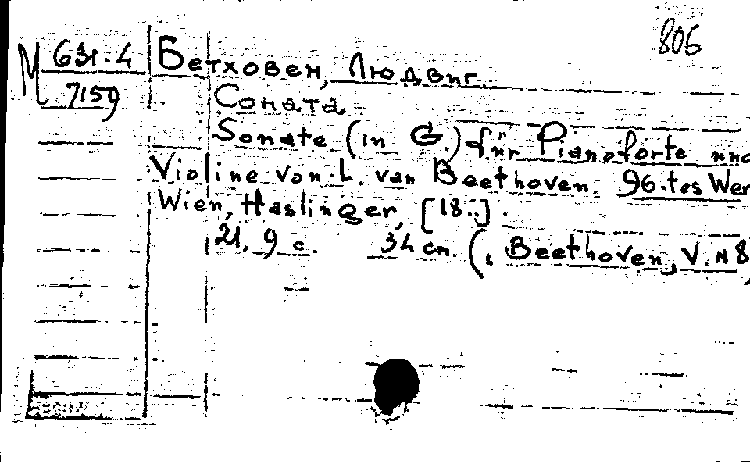 806
М 631-4
7159
Бетховен, Людвиг
Соната
Sonate (in G.) für Pianoforte und
Violine van L. van Beethoven. 96.tes Wer
Wien, Haslinger, [18..].
21, 9 c. 34 cm. (. Beethoven, V. N 8